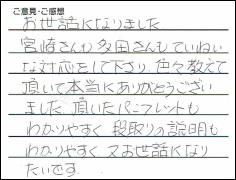 ご意見・ご感想
お世話になりました
宮崎さんも多田さんもていねい
な対応をして下さり 色々教えて
頂いて本当にありがとうござい
ました 頂いたパンフレットも
わかりやすく 段取りの説明も
わかりやすく 又お世話になり
たいです.